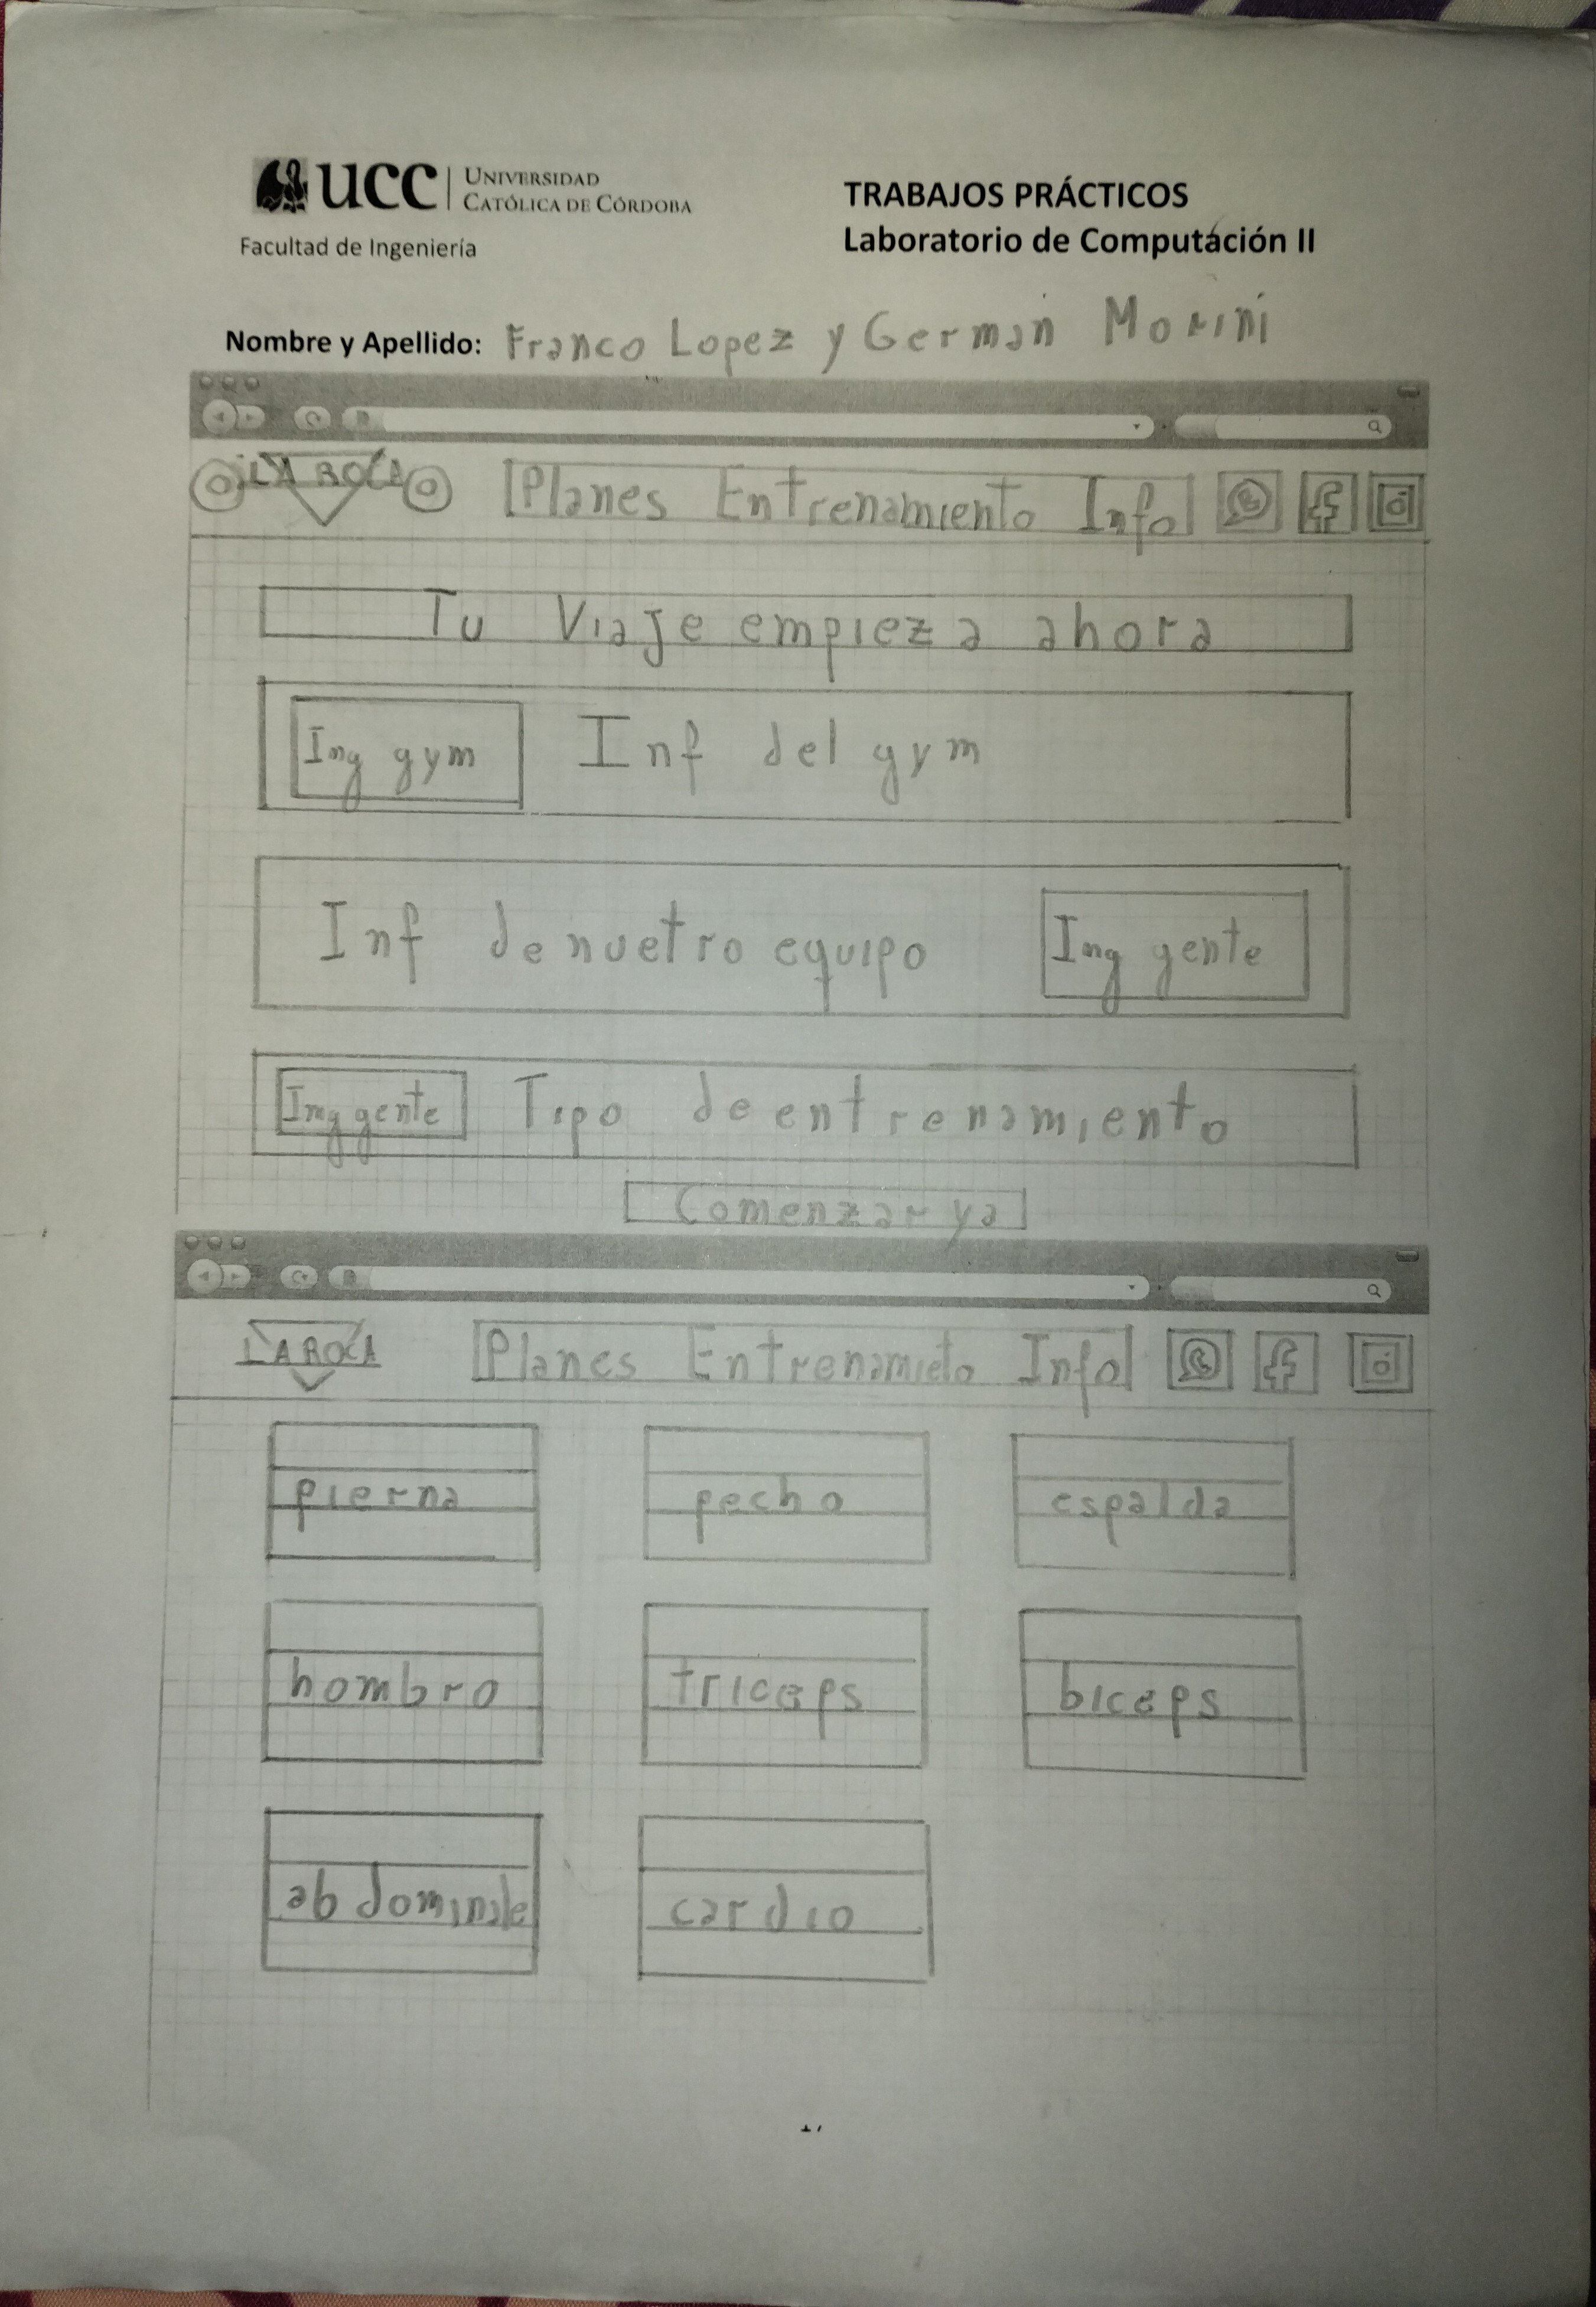 UCC UNIVERSIDAD
CATÓLICA DE CÓRDOBA
Facultad de Ingeniería
TRABAJOS PRÁCTICOS
Laboratorio de Computación II
Nombre y Apellido: Franco Lopez y German Morini
LA ROCA Planes Entrenamiento Info
Tu Viaje empieza ahora
Img gym Inf del gym
Inf de nuetro equipo Img gente
Img gente Tipo de entrenamiento
Comenzar ya
LA ROCA Planes Entrenamieto Info
pierna pecho espalda
hombro triceps biceps
abdominale cardio